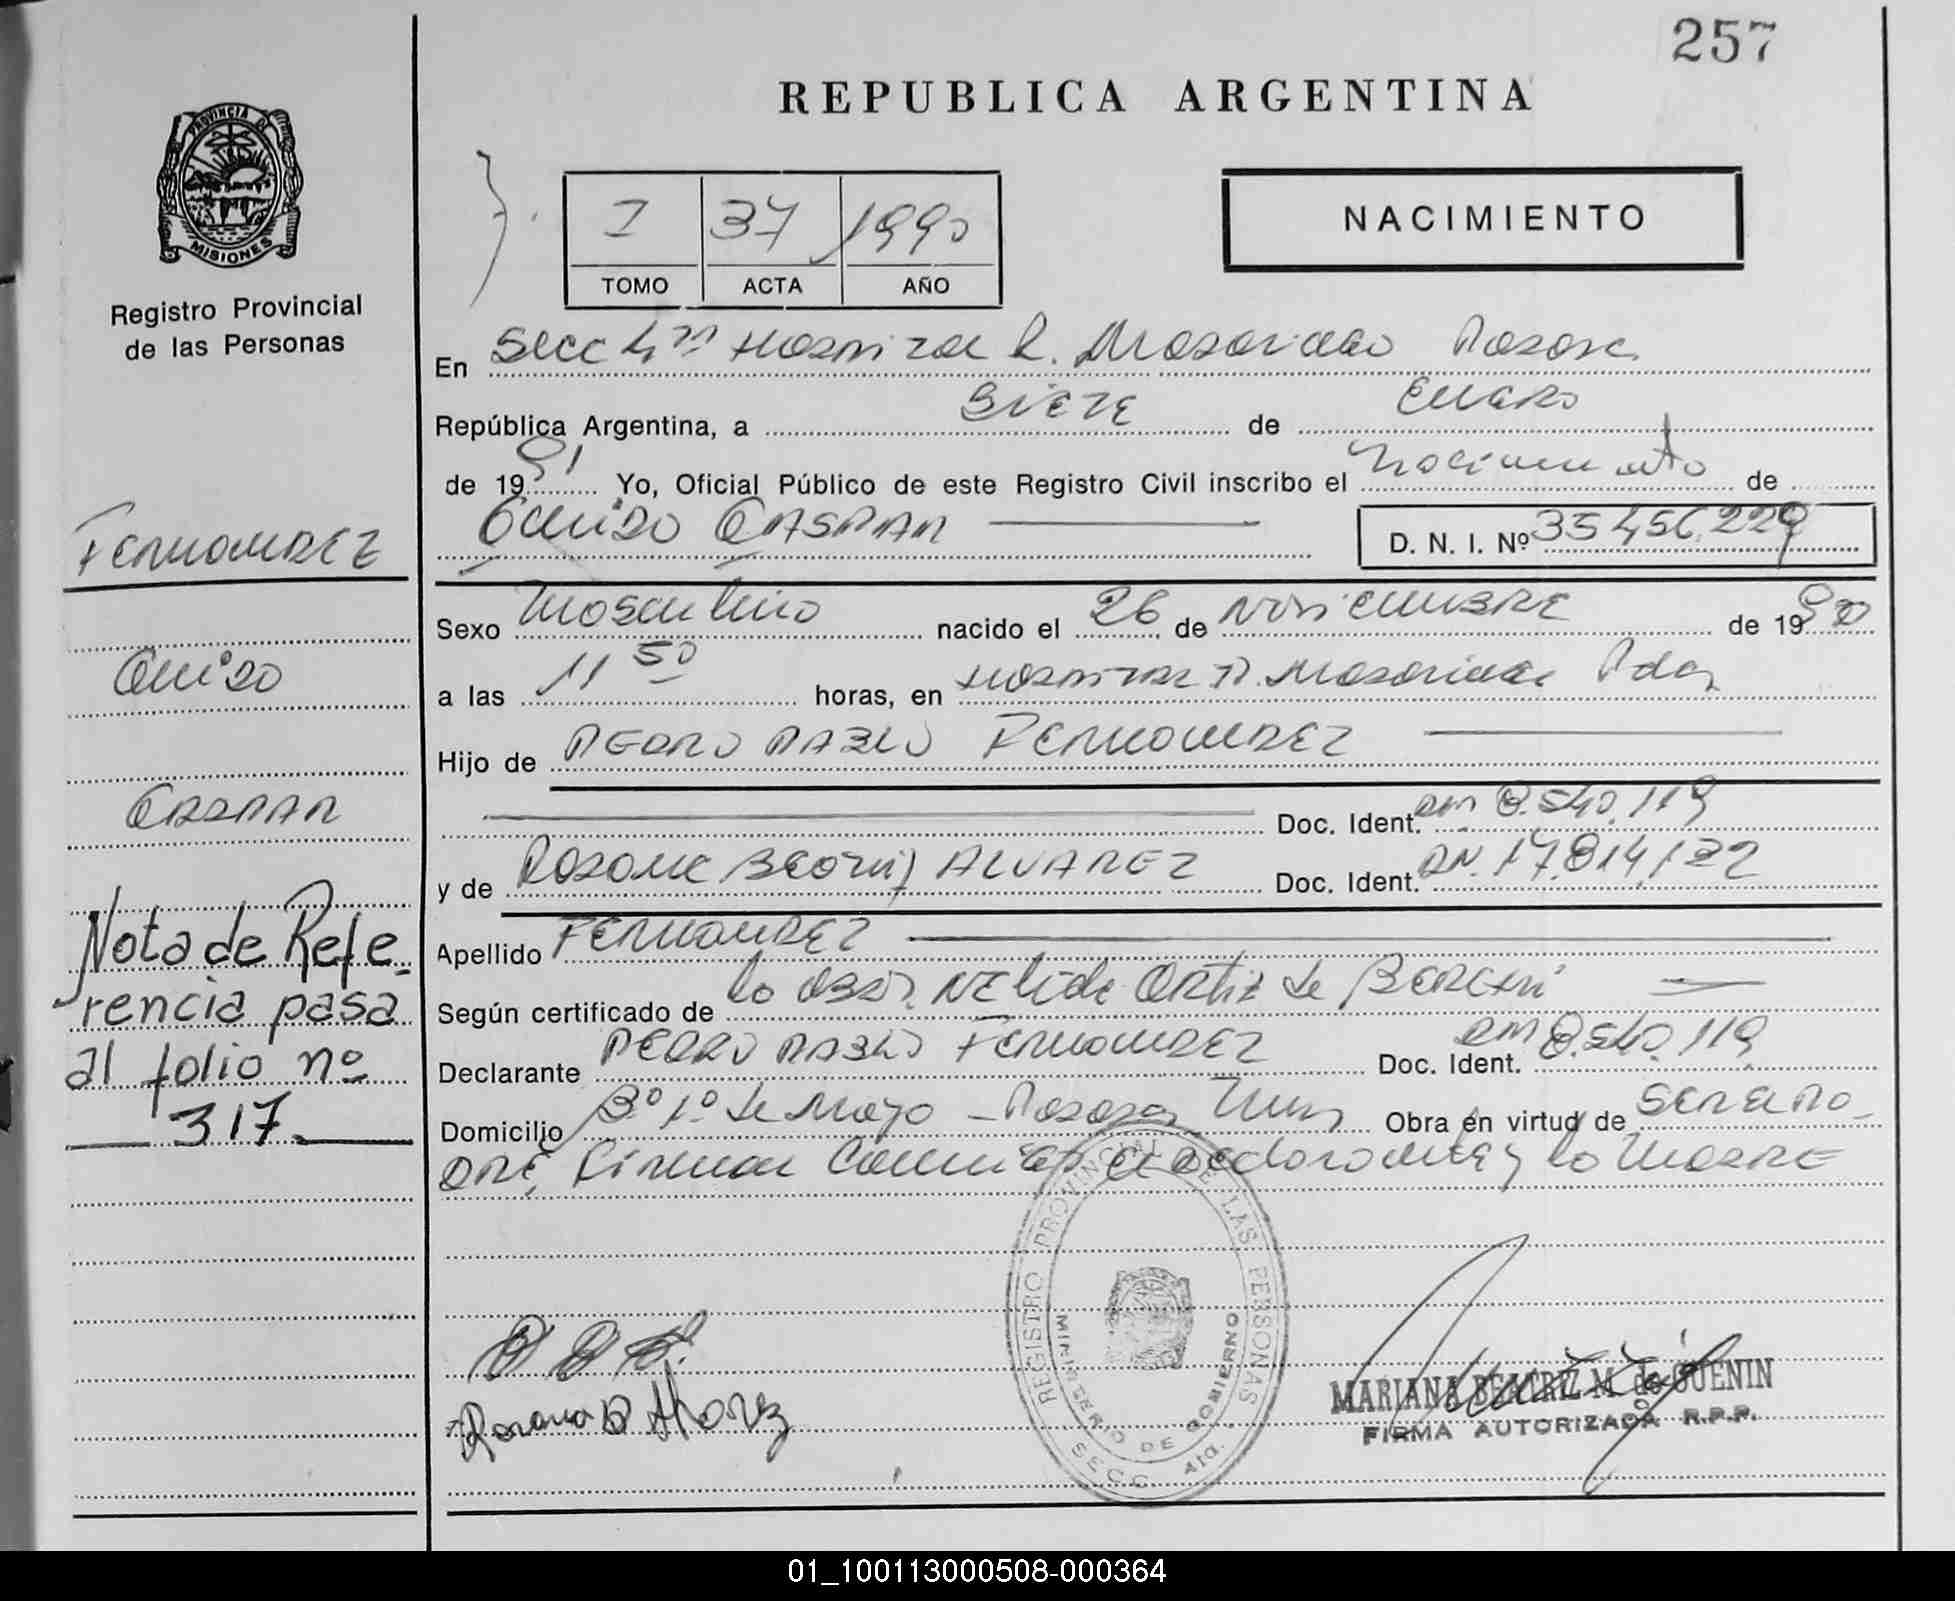 257
REPUBLICA ARGENTINA
PROVINCIA DE
MISIONES
Registro Provincial
de las Personas
I 37 1990
TOMO ACTA AÑO
NACIMIENTO
En Secc 4ta Hospital R. Madariaga Posadas
República Argentina, a SIETE de ENERO
de 1991 Yo, Oficial Público de este Registro Civil inscribo el nacimiento de
GUIDO GASPAR D. N. I. Nº 35 456.229
Sexo Masculino nacido el 26 de NOVIEMBRE de 1990
a las 11 50 horas, en Hospital R. Madariaga Pdas
Hijo de PEDRO PABLO FERNANDEZ
Doc. Ident. DM 8.540.119
y de ROSANA Beatriz ALVAREZ Doc. Ident. DN. 17.814.132
Apellido FERNANDEZ
Según certificado de la Obst. Nelida Ortiz de
Declarante PEDRO PABLO FERNANDEZ Doc. Ident. DM 8.540.119
Domicilio Bº 1º de Mayo - Posadas Mnes Obra en virtud de SER EL PA-
DRE, Firman el declarante y la MADRE
FERNANDEZ
GUIDO
GASPAR
Nota de Refe-
rencia pasa
al folio nº
317
Rosana B Alvarez
REGISTRO PROVINCIAL DE LAS PERSONAS
MINISTERIO DE GOBIERNO
SECC. 4ta.
MARIANA BEATRIZ M. de GUENIN
FIRMA AUTORIZADA R.P.P.
01_100113000508-000364